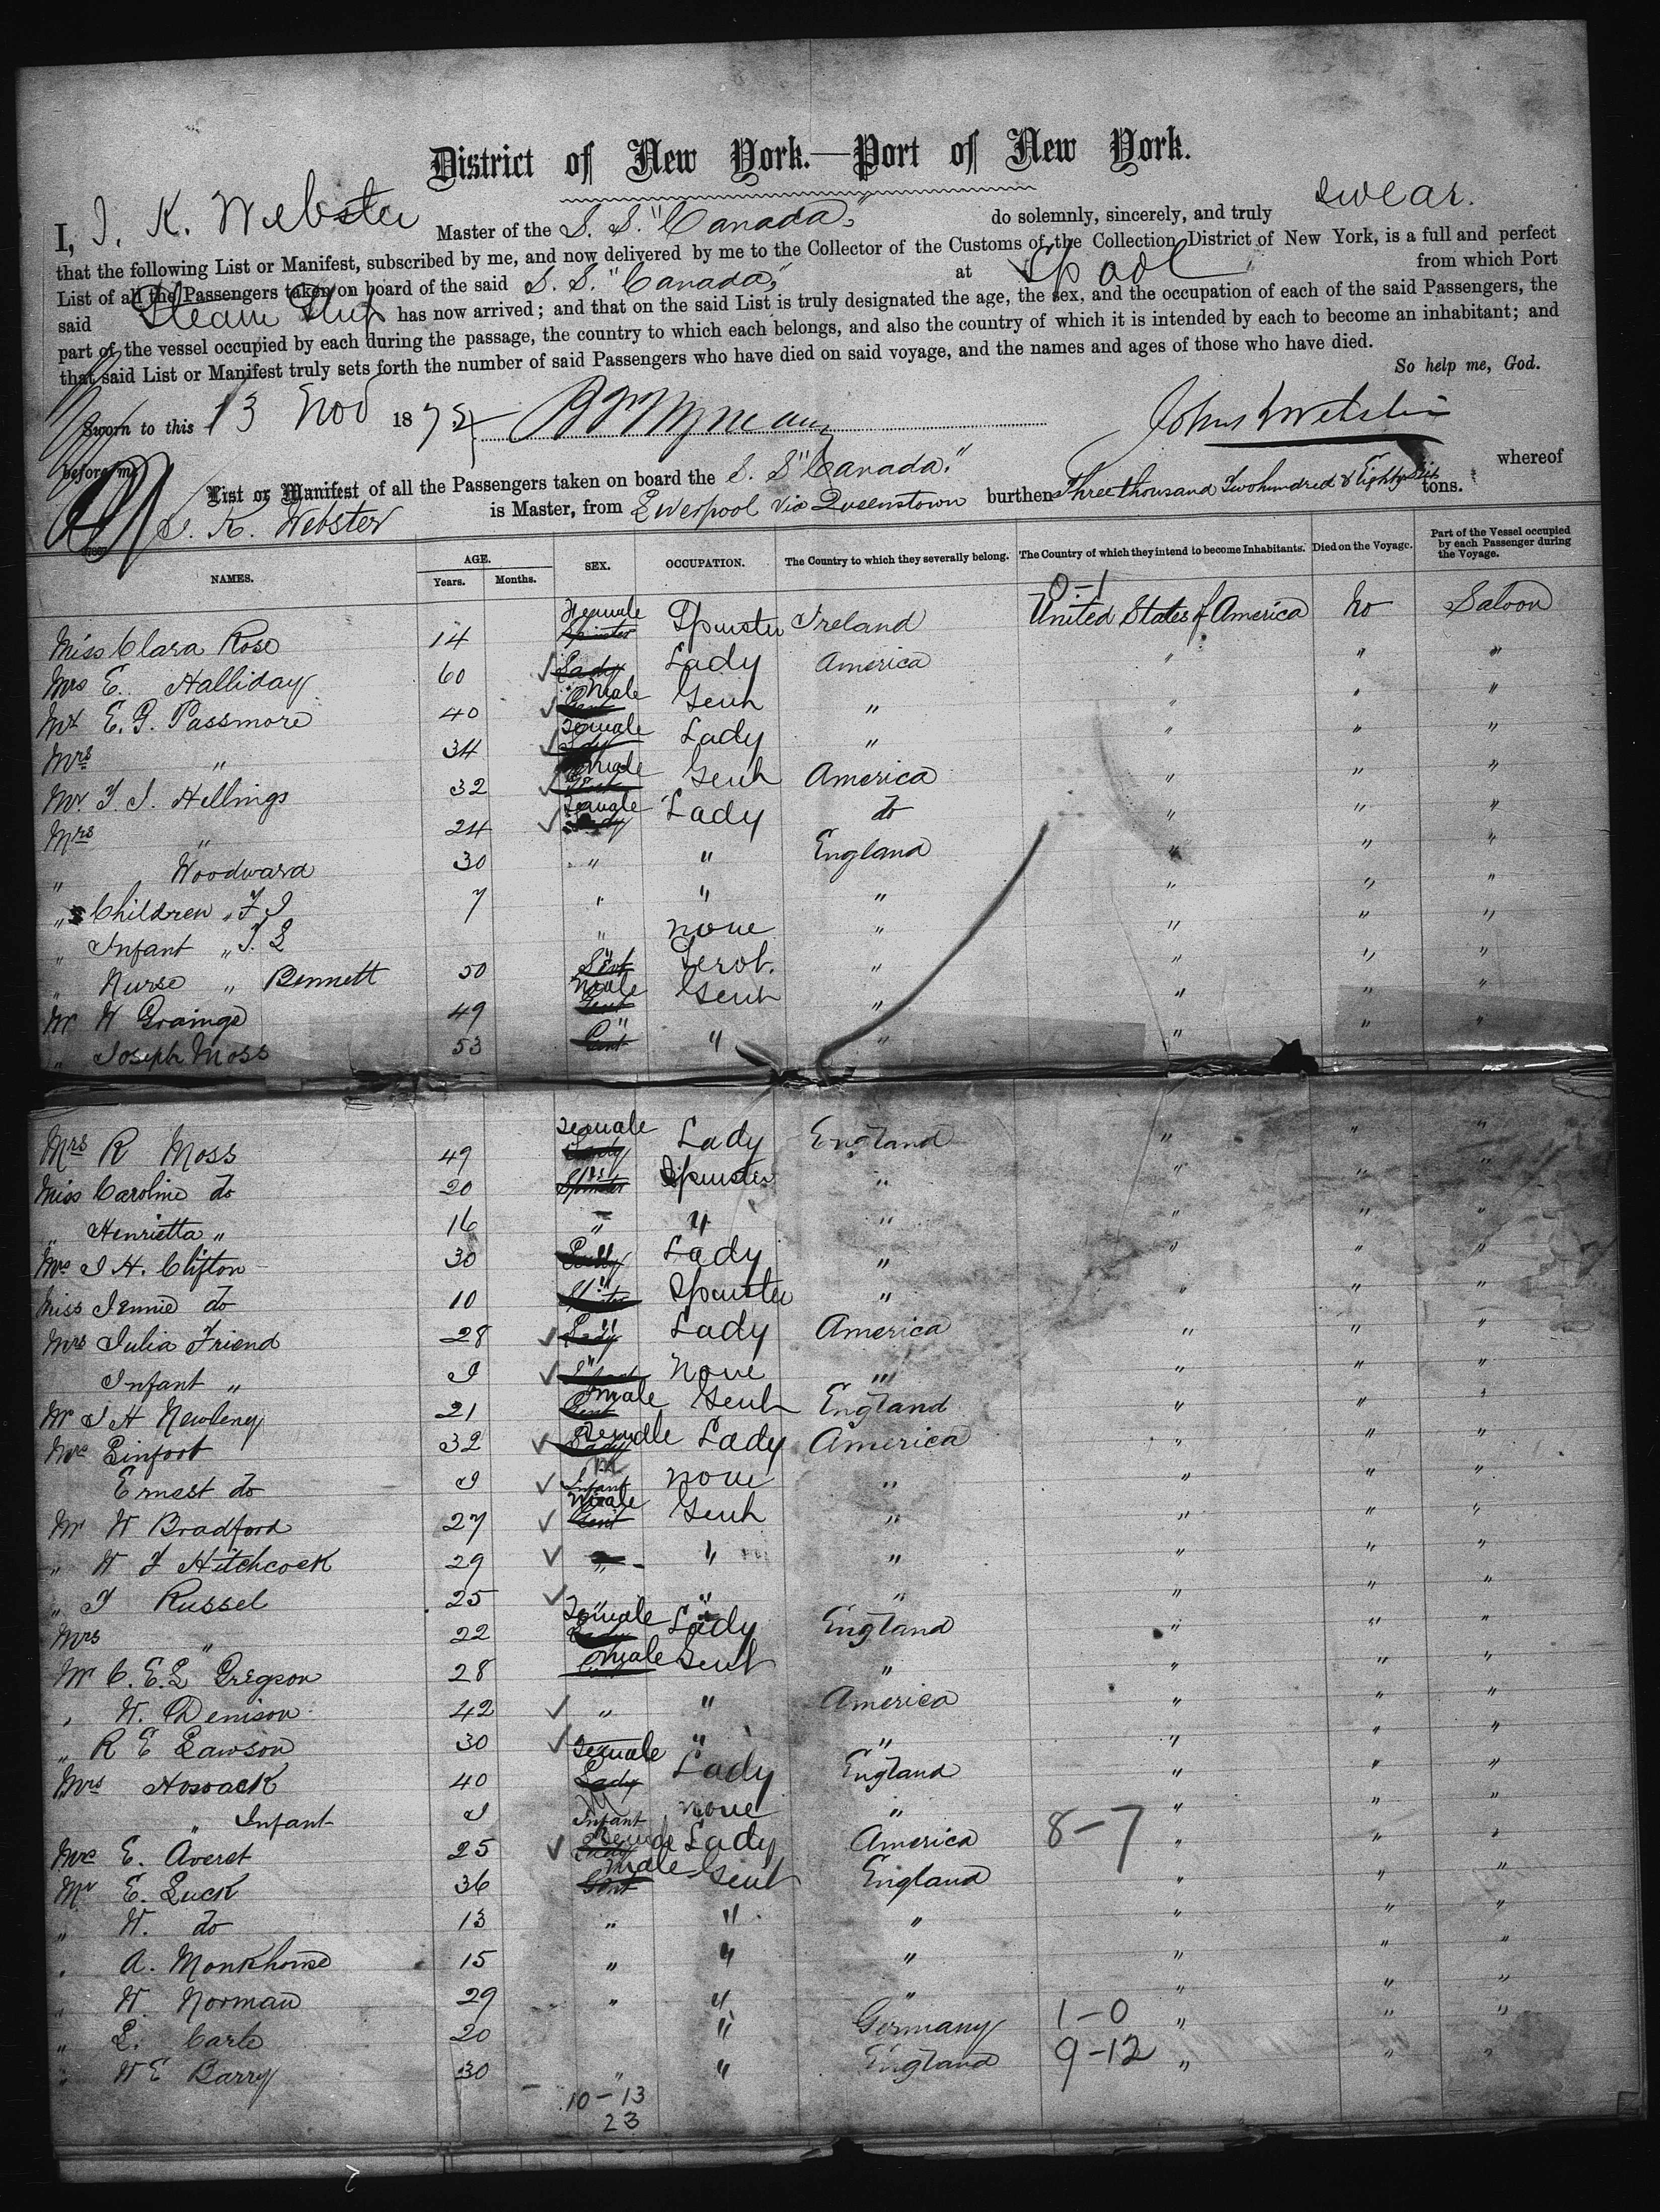 District of New York.—Port of New York.
I, J. K. Webster Master of the S. S. "Canada," do solemnly, sincerely, and truly swear.
that the following List or Manifest, subscribed by me, and now delivered by me to the Collector of the Customs of the Collection District of New York, is a full and perfect
List of all the Passengers taken on board of the said S. S. "Canada," at L'pool from which Port
said Steam Ship has now arrived; and that on the said List is truly designated the age, the sex, and the occupation of each of the said Passengers, the
part of the vessel occupied by each during the passage, the country to which each belongs, and also the country of which it is intended by each to become an inhabitant; and
that said List or Manifest truly sets forth the number of said Passengers who have died on said voyage, and the names and ages of those who have died.
So help me, God.
Sworn to this 13 Nov 187 John K Webster
before me
List or Manifest of all the Passengers taken on board the S. S "Canada." whereof
J. K. Webster is Master, from Liverpool via Queenstown burthen Three thousand Two hundred & Eighty Six tons.
NAMES. AGE. Years. Months. SEX. OCCUPATION. The Country to which they severally belong. The Country of which they intend to become Inhabitants. Died on the Voyage. Part of the Vessel occupied by each Passenger during the Voyage.
0-1
Miss Clara Rose 14 Female Spinster Spinster Ireland United States of America No Saloon
Mrs E. Halliday 60 Lady Lady America " " "
Mr E. G. Passmore 40 Male Gent Gent " " " "
Mrs " 34 Female Lady Lady " " " "
Mr. T. J. Hellings 32 Male Gent America " " "
Mrs " 24 Female Lady Lady do " " "
" Woodward 30 " " England " " "
" Children " F J 7 " " " " " "
" Infant " J. L " none " " " "
" Nurse " Bennett 50 " Servt Servt. " " " "
Mr W Grainge 49 Male Gent Gent " " " "
" Joseph Moss 53 " Gent " " " " "
Mrs R Moss 49 Female Lady Lady England " " "
Miss Caroline do 20 " Spinster Spinster " " " "
" Henrietta " 16 " " " " " "
Mrs J H. Clifton 30 " Lady Lady " " " "
Miss Jennie do 10 " Spinster Spinster " " " "
Mrs Julia Friend 28 " Lady Lady America " " "
Infant " I " None " " " "
Mr J H Newbery 21 Male Gent Gent England " " "
Mrs 32 Female Lady Lady America " " "
Ernest do I M Infant none " " " "
Mr W Bradford 27 Male Gent Gent " " " "
" W F Hitchcock 29 " " " " " "
" J Russel 25 " " " " " "
Mrs " 22 Female Lady Lady England " " "
Mr C. E. L Gregson 28 Male Gent Gent " " " "
" W. Denison 42 " " America " " "
" R E Lawson 30 " " " " " "
Mrs Hossack 40 Female Lady Lady England " " "
" Infant I M Infant none " " " "
8-7
Mrs E. Averst 25 Female Lady Lady America " " "
Mr E. Luck 36 Male Gent Gent England " " "
" W. do 13 " " " " " "
" A. Monkhouse 15 " " " " " "
" W. Norman 29 " " " " " "
" L. Carle 20 " Germany 1-0 " " "
" W E Barry 30 " " England 9-12 " " "
10-13
23